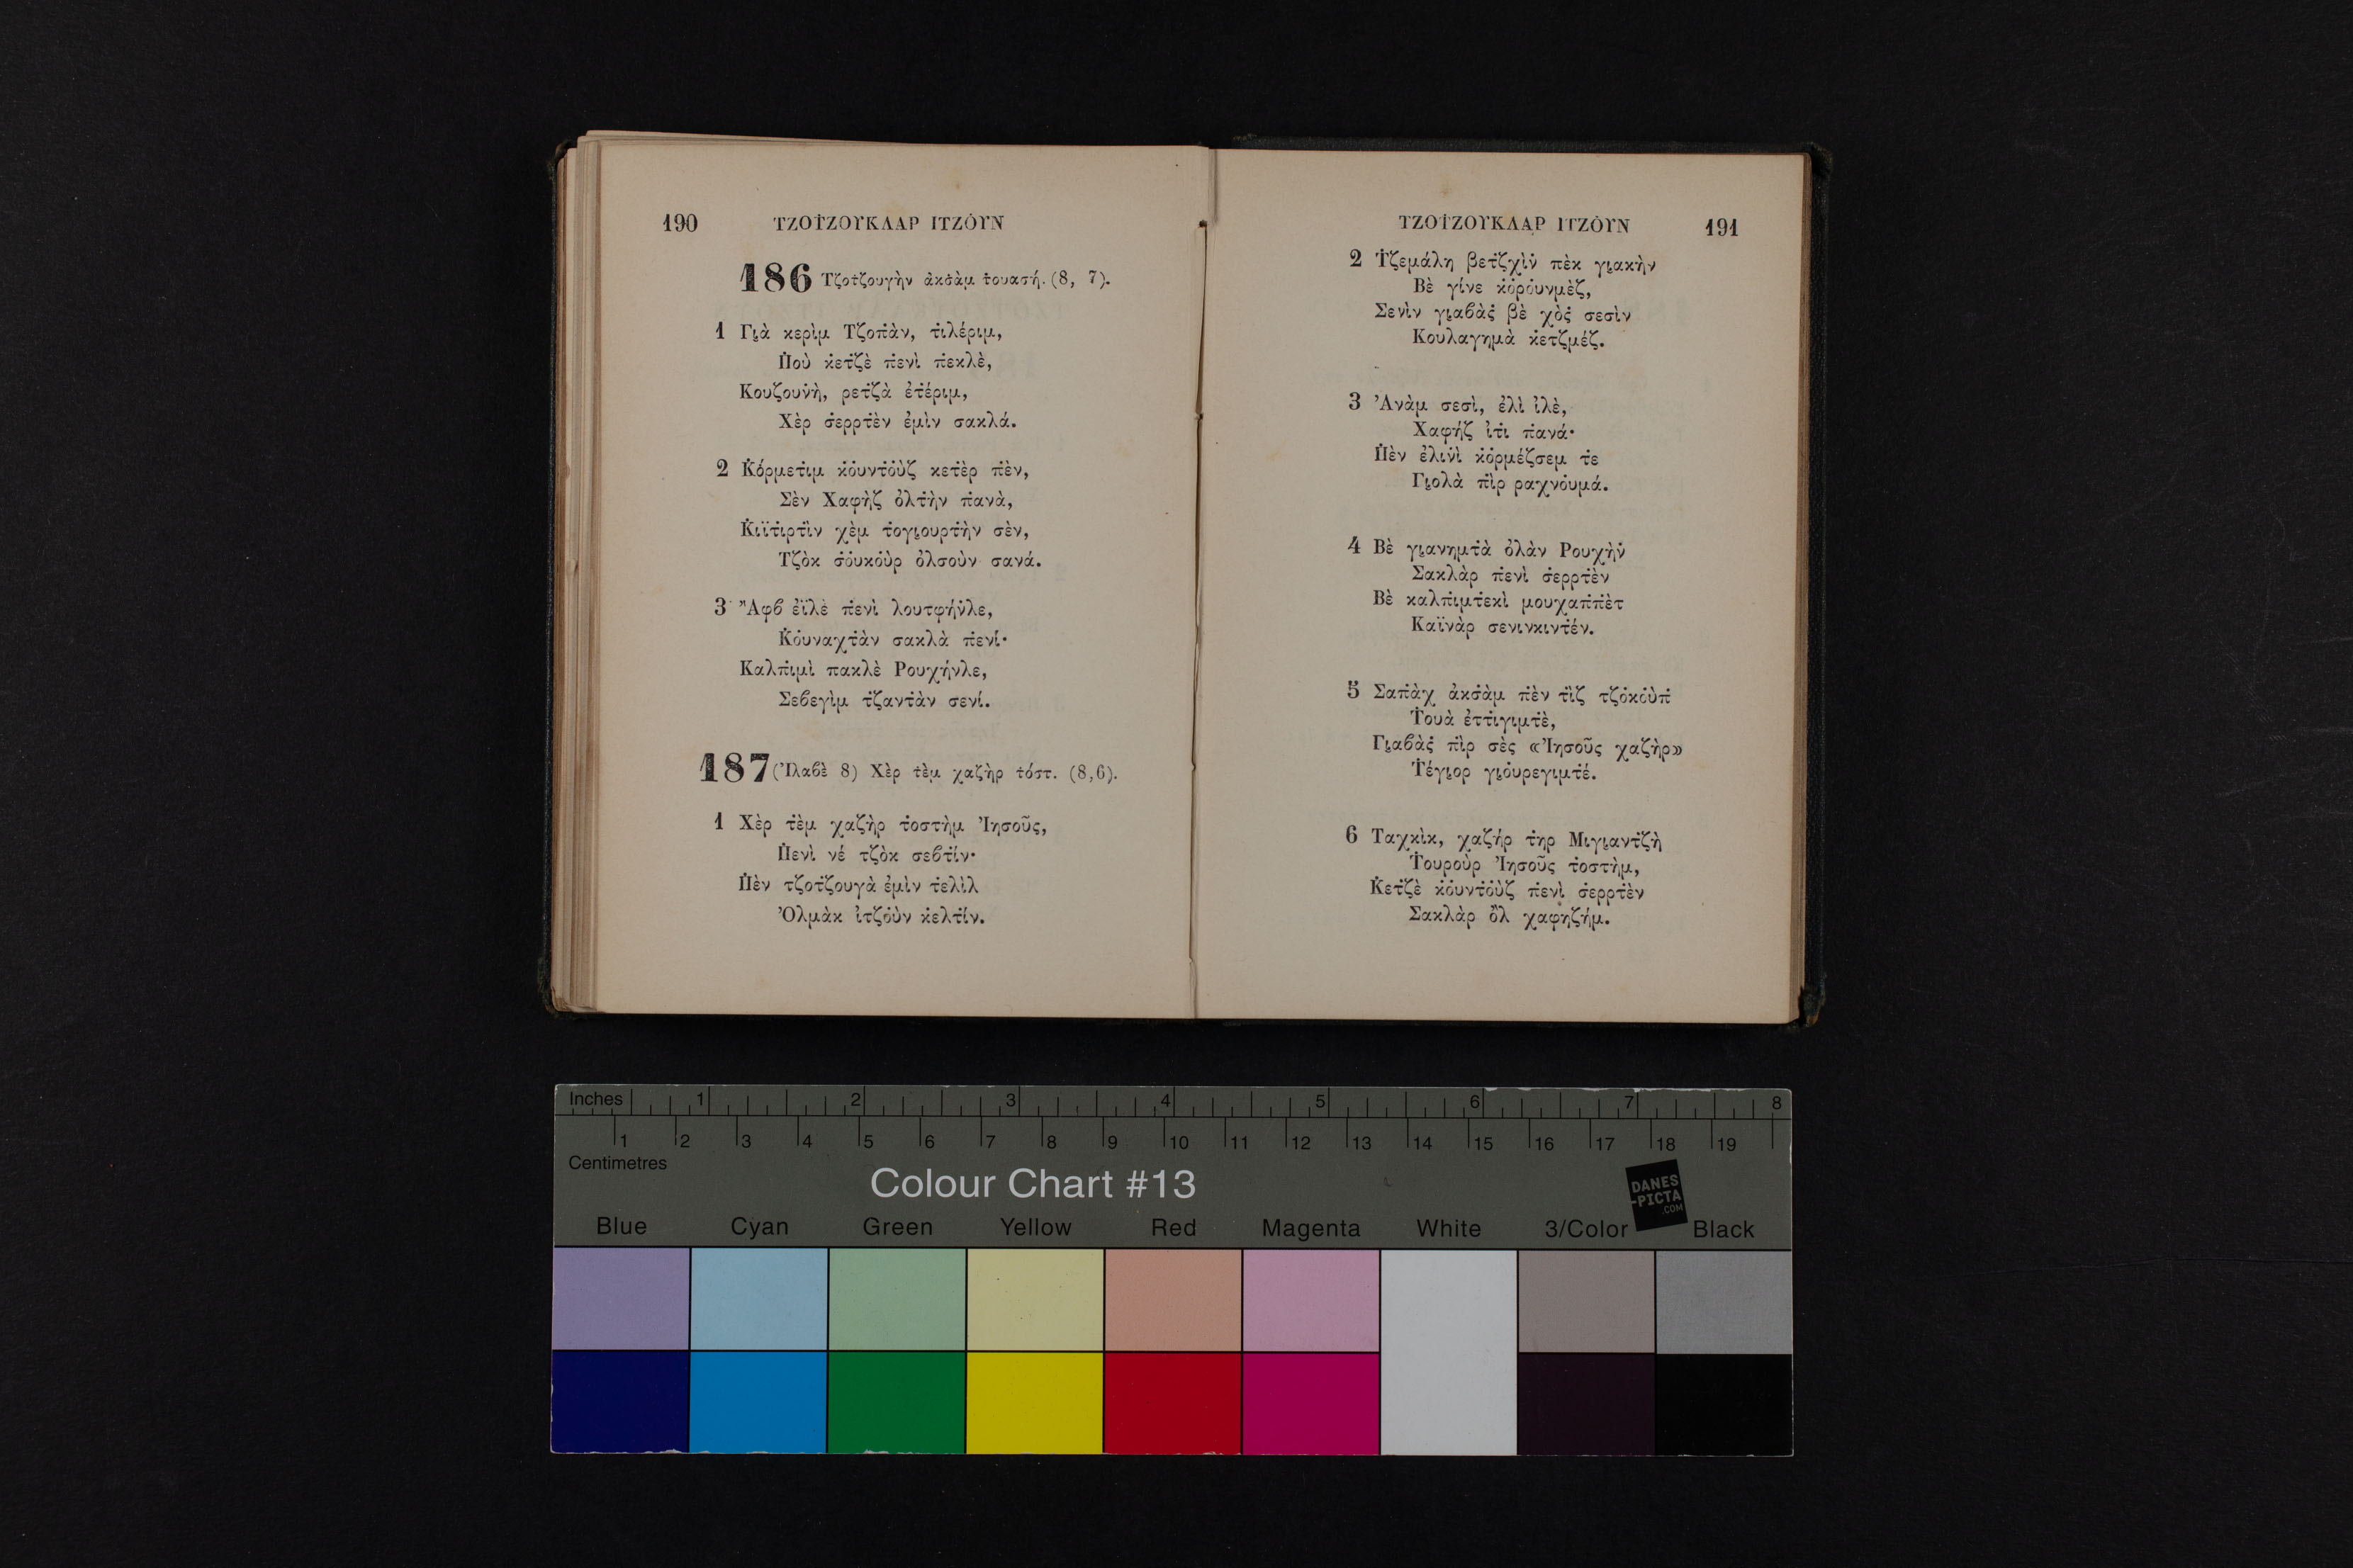 190 ΤΖΟΤ̇ΖΟΥΚΛΑΡ ΙΤΖΟ̇ΥΝ
186 Τζοτ̇ζουγὴν ἀκσ̇ὰμ τ̇ουασή. (8, 7).
1 Γι̯ὰ κερὶμ Τζοπ̇ὰν, τ̇ιλέριμ,
Π̇οὺ κ̇ετ̇ζὲ π̇ενὶ π̇εκλὲ,
Κουζουν̇ὴ, ρετ̇ζὰ ἐτ̇έριμ,
Χὲρ σ̇ερρτ̇ὲν ἐμὶν σακλά.
2 Κ̇ό̇ρμετ̇ιμ κ̇ο̇υντ̇ο̇ὺζ κετ̇ὲρ π̇ὲν,
Σὲν Χαφὴζ ὀλτ̇ὴν π̇ανὰ,
Κ̇ιϊτ̇ιρτ̇ὶν χὲμ τ̇ογι̯ουρτ̇ὴν σὲν,
Τζὸκ σ̇ο̇υκ̇ο̇ὺρ ὀλσοὺν σανά.
3 Ἄφϐ ἐϊλὲ π̇ενὶ λουτφήν̇λε,
Κ̇ο̇υναχτ̇ὰν σακλὰ π̇ενί·
Καλπ̇ιμὶ πακλὲ Ρουχήν̇λε,
Σεϐεγὶμ τ̇ζαντ̇ὰν σενί.
187 (Ἰλαϐὲ 8) Χὲρ τ̇ὲμ χαζὴρ τ̇όστ. (8,6).
1 Χὲρ τ̇ὲμ χαζὴρ τ̇οστὴμ Ἰησοῦς,
Π̇ενὶ νέ τζὸκ σεϐτ̇ίν·
Π̇ὲν τζοτ̇ζουγὰ ἐμὶν τ̇ελὶλ
Ὀλμὰκ ἰτζο̇ὺν κ̇ελτ̇ίν.
ΤΖΟΤ̇ΖΟΥΚΛΑΡ ΙΤΖΟ̇ΥΝ 191
2 Τ̇ζεμάλη βετ̇ζχὶν̇ πὲκ γι̯ακὴν
Βὲ γίνε κ̇ο̇ρο̇υνμὲζ,
Σενὶν γι̯αϐὰς̇ βὲ χὸς̇ σεσὶν
Κουλαγημὰ κ̇ετζμέζ.
3 Ἀνὰμ σεσὶ, ἐλὶ ἰλὲ,
Χαφήζ ἰτ̇ι π̇ανά·
Π̇ὲν ἐλιν̇ὶ κ̇ο̇ρμέζσεμ τ̇ε
Γι̯ολὰ π̇ὶρ ραχνο̇υμά.
4 Βὲ γι̯ανημτ̇ὰ ὀλὰν Ρουχὴν̇
Σακλὰρ π̇ενὶ σ̇ερρτ̇ὲν
Βὲ καλπ̇ιμτ̇εκὶ μουχαπ̇π̇ὲτ
Καϊνὰρ σενινκιντ̇έν.
5 Σαπ̇ὰχ ἀκσ̇ὰμ π̇ὲν τ̇ὶζ τζο̇κο̇ὺπ̇
Τ̇ουὰ ἐττ̇ιγιμτ̇ὲ,
Γι̯αϐὰς̇ π̇ὶρ σὲς «Ἰησοῦς χαζὴρ»
Τ̇έγι̯ορ γι̯ο̇υρεγιμτ̇έ.
6 Ταχκὶκ, χαζήρ τ̇ηρ Μιγι̯αντ̇ζὴ
Τ̇ουροὺρ Ἰησοῦς τ̇οστὴμ,
Κ̇ετ̇ζὲ κ̇ο̇υντ̇ο̇ὺζ π̇ενὶ σ̇ερρτ̇ὲν
Σακλὰρ ὂλ χαφηζήμ.
Inches 1 2 3 4 5 6 7 8
1 2 3 4 5 6 7 8 9 10 11 12 13 14 15 16 17 18 19
Centimetres
Colour Chart #13
DANES
-PICTA
.COM
Blue Cyan Green Yellow Red Magenta White 3/Color Black